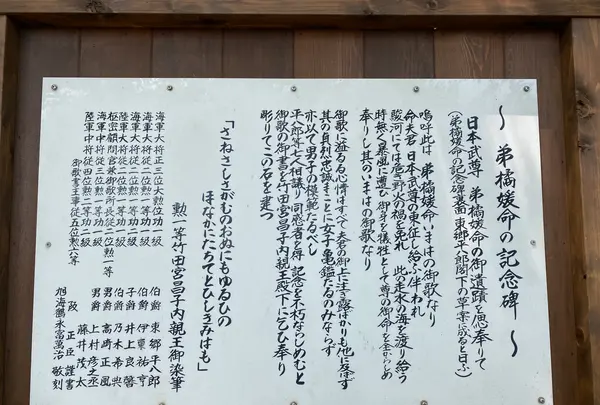 ～弟橘媛命の記念碑～
日本武尊 弟橘媛命の御遺蹟を思奉りて
(弟橘媛命の記念碑裏面東郷平八郎閣下の草案に成ると曰ふ)
嗚呼此は 弟橘媛命いまはの御歌なり
命夫君 日本武尊の東征し給ふ伴われ
駿河にては危き野火の禍を免れ 此の走水の海を渡り給う
時俄に暴風に遭ひ 御身を犠牲として尊の御命を全からしめ
奉りし其のいまはの御歌なり
御歌に溢るる心情はすべて夫君の御上に注ぎ露ばかりも他に及ばず
其の貞烈忠誠まことに女子亀鑑たるのみならず
亦以て男子の模範たるべし
平八郎等七人相議り同感者を得 記念を不朽ならしめむと
御歌の御書を竹田宮昌子内親王殿下に乞ひ奉り
彫りてこの石を建つ
「さねさしさがむのおぬにもゆるひの
ほなかにたちてとひしきみはも」
勲一等竹田宮昌子内親王御染筆
海軍大将正三位大勲位功一級 伯爵 東郷平八郎
海軍大将従二位勲一等功二級 伯爵 伊東祐亨
陸軍大将従二位勲一等功二級 子爵 井上良馨
陸軍大将従二位勲一等功一級 伯爵 乃木希典
枢密顧問官兼御歌所長従二位勲一等 男爵 高崎正風
海軍中将従三位勲一等功一級 男爵 上村彦之丞
陸軍中将従四位勲二等功三級 藤井茂太
御歌書主事従五位勲六等 阪正臣謹書
旭海鶴永富萬治敬刻